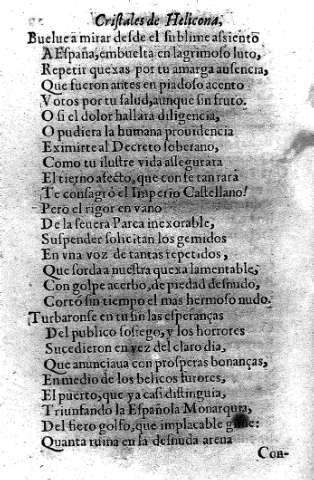 Cristales de Helicona,
Buelue a mirar desde el sublime assiento
A España, embuelta en lagrimoso luto,
Repetir quexas por tu amarga ausencia,
Que fueron antes en piadoso acento
Votos por tu salud, aunque sin fruto.
O si el dolor hallara diligencia,
O pudiera la humana prouidencia
Eximirte al Decreto soberano,
Como tu ilustre vida assegurara
El tierno afecto, que con fe tan rara
Te consagrò el Imperio Castellano!
Pero el rigor en vano
De la seuera Parca inexorable,
Suspender solicitan los gemidos
En vna voz de tantas repetidos,
Que sorda a nuestra quexa lamentable,
Con golpe acerbo, de piedad desnudo,
Cortò sin tiempo el mas hermoso nudo.
Turbaronse en tu fin las esperanças
Del publico sosiego, y los horrores
Sucedieron en vez del claro dia,
Que anunciaua con prosperas bonanças,
En medio de los belicos furores,
El puerto, que ya casi distinguia,
Triunfando la Española Monarquia,
Del fiero golfo, que implacable gime:
Quanta ruina en la desnuda arena
Con-